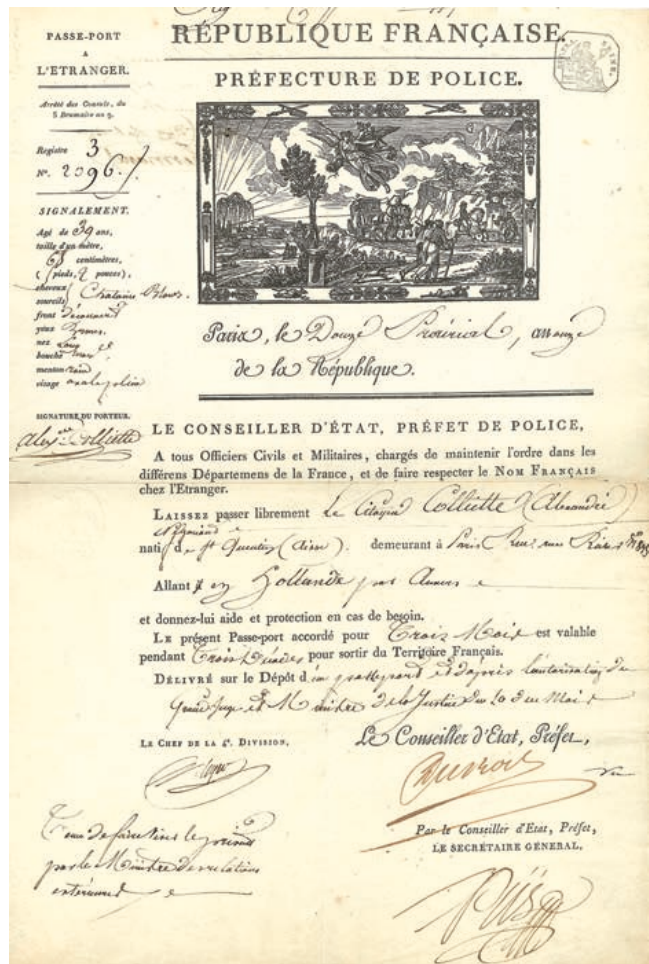 PASSE-PORT
A
L'ETRANGER.
Arrêté des Consuls, du
8 Brumaire an 9.
Registre 3
N°. 2096
SIGNALEMENT.
Agé de 39 ans,
taille d'un mètre,
68 centimètres,
( pieds, 2 pouces),
cheveux
sourcils Chatains Blonds
front découvert
yeux
nez Long
bouche
menton rond
visage ovale plein
SIGNATURE DU PORTEUR.
Colliette
RÉPUBLIQUE FRANÇAISE.
PRÉFECTURE DE POLICE.
Paris, le Douze Prairial, an onze
de la République.
LE CONSEILLER D'ÉTAT, PRÉFET DE POLICE,
A tous Officiers Civils et Militaires, chargés de maintenir l'ordre dans les
différens Départemens de la France, et de faire respecter le NOM FRANÇAIS
chez l'Etranger.
LAISSEZ passer librement Le Citoyen Colliette (Alexandre
natif de St Quentin (aisne). demeurant à Paris
Allant en Hollande par Anvers
et donnez-lui aide et protection en cas de besoin.
LE présent Passe-port accordé pour Trois Mois est valable
pendant Trois Décades pour sortir du Territoire Français.
DÉLIVRÉ sur le Dépôt d'un passeport et d'après l'autorisation du
Grand Juge et Ministre de la Justice du 10 de ce Mois
LE CHEF DE LA 4e. DIVISION,
Le Conseiller d'Etat, Préfet,
Dubois
Par le Conseiller d'Etat, Préfet,
LE SECRÉTAIRE GÉNÉRAL.
Piis
Tenu de faire viser le présent
par le Ministre des relations
extérieures